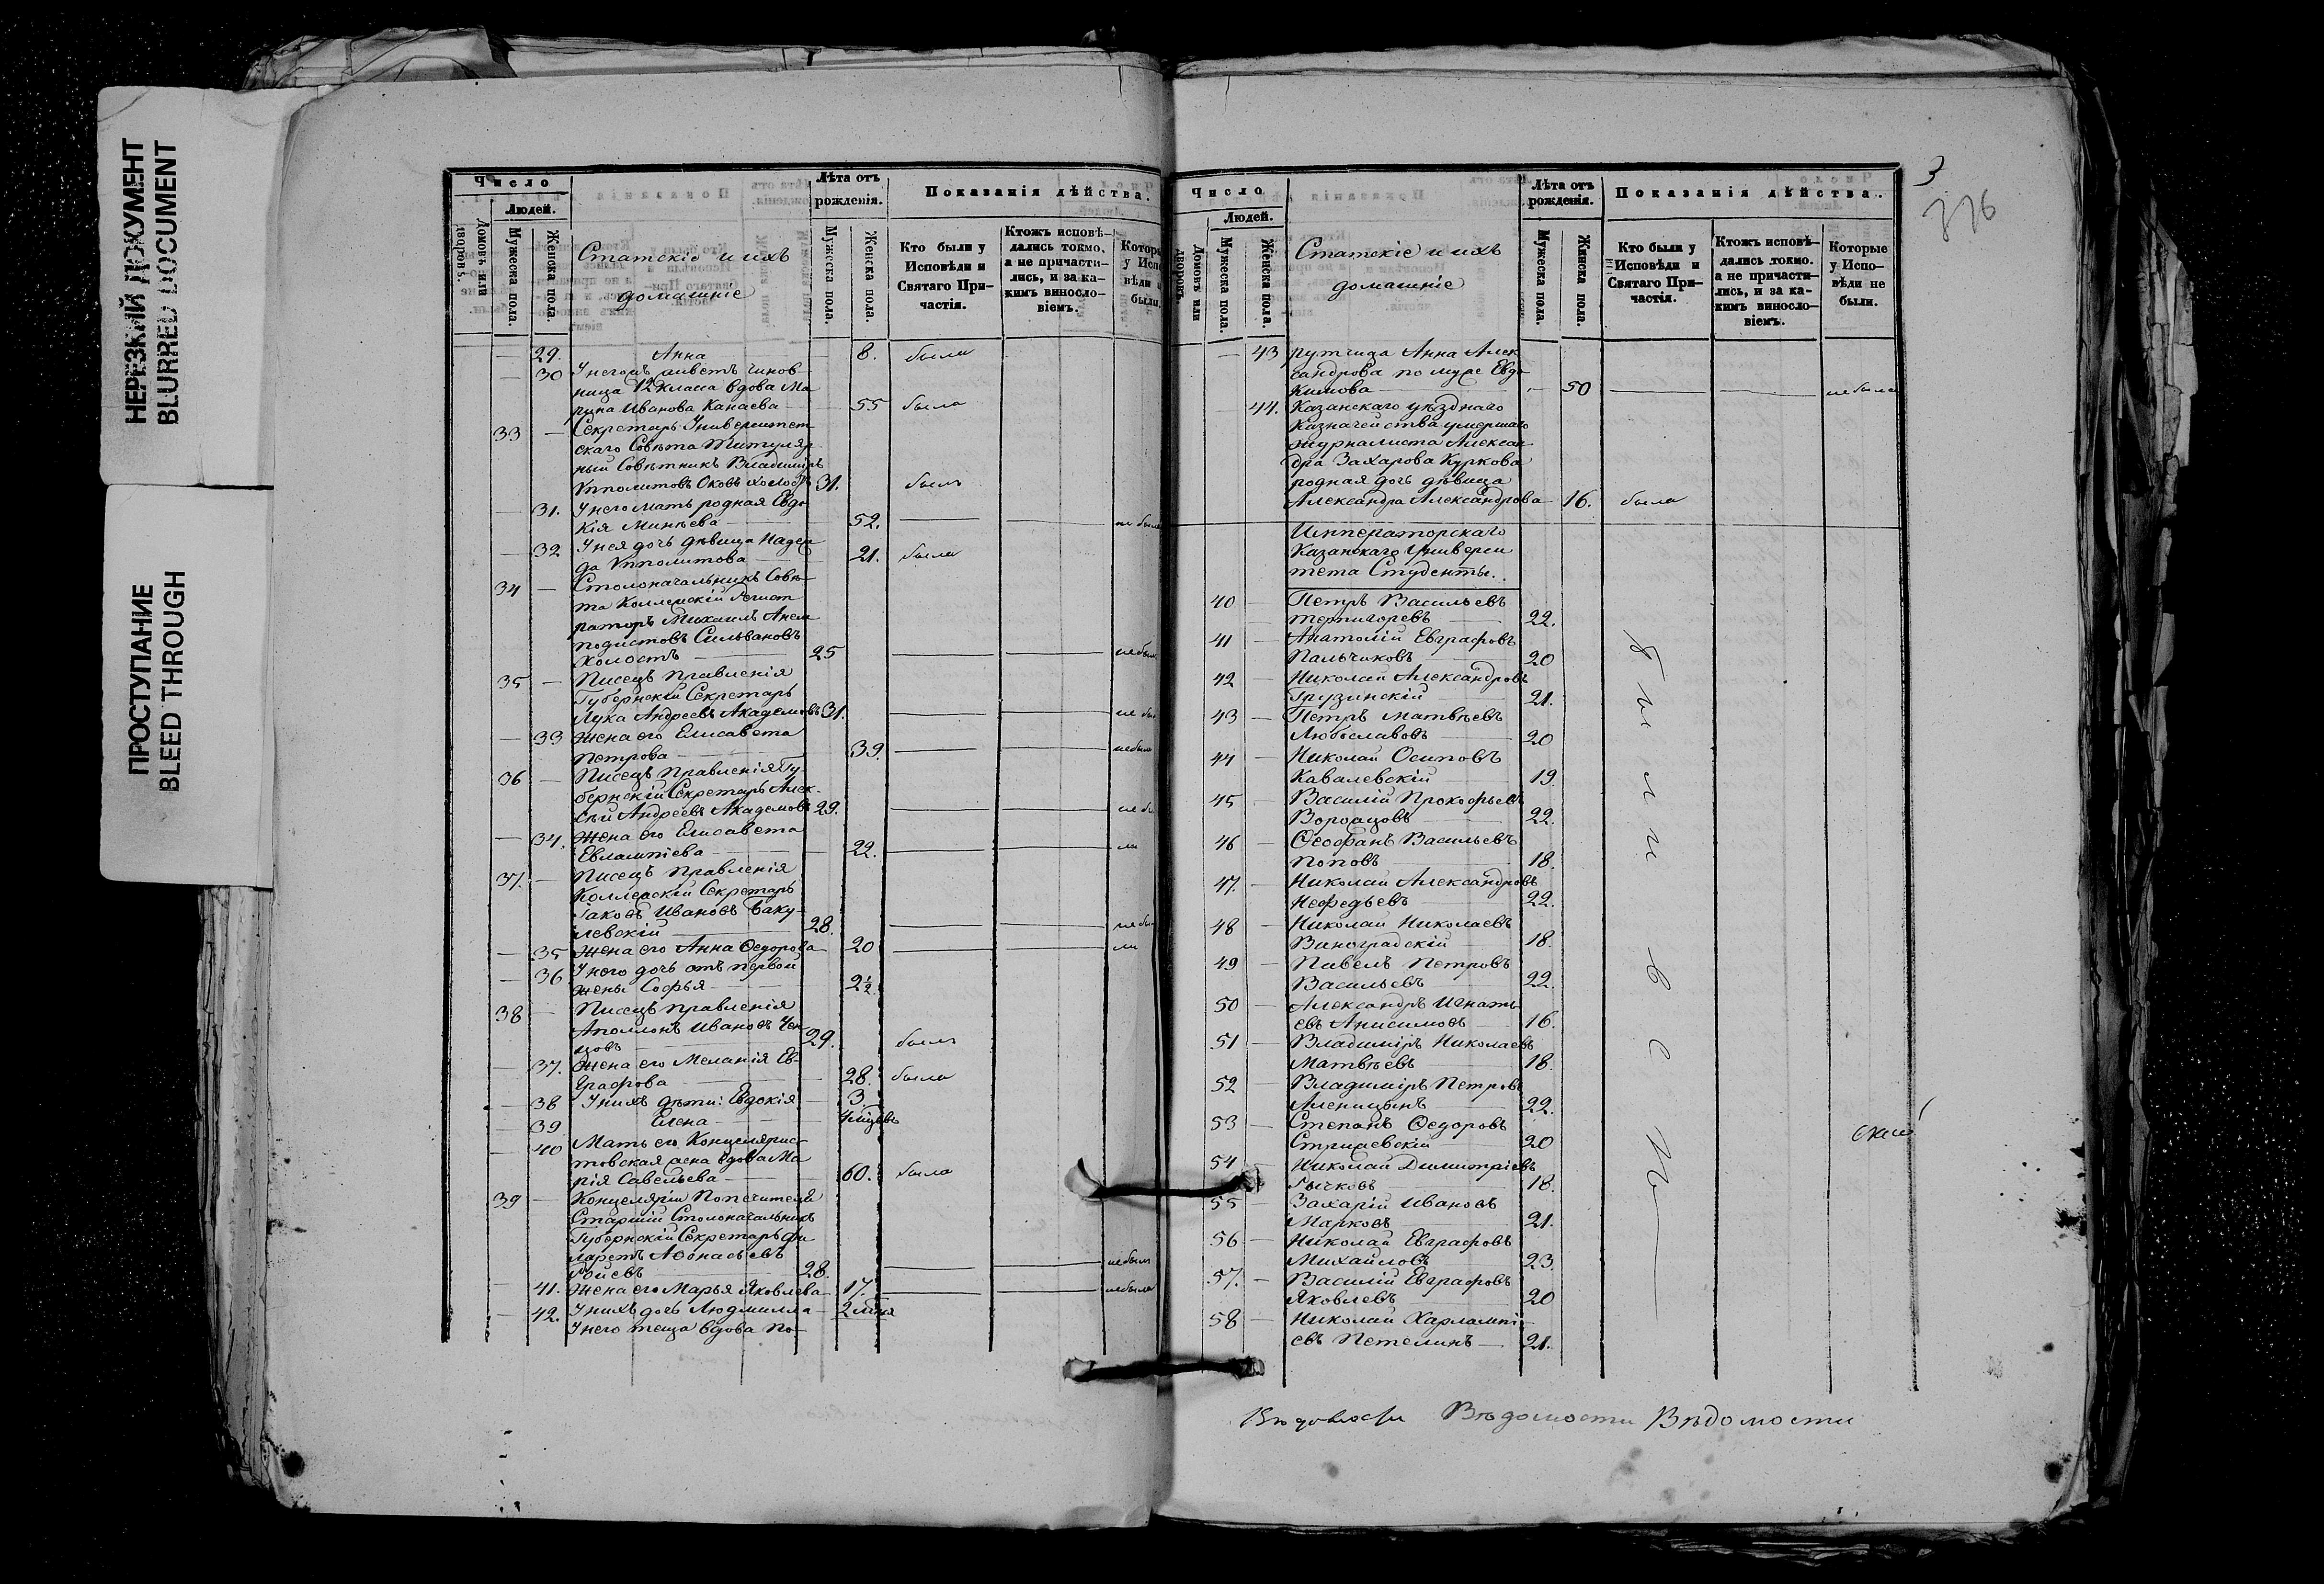 НЕРЕЗКИЙ ДОКУМЕНТ
BLURRED DOCUMENT
ПРОСТУПАНИЕ
BLEED THROUGH
Число
Людей.
Домовъ или дворовъ.
Мужеска пола.
Женска пола.
Статскіе и ихъ
домашніе
Лѣта отъ
рожденія.
Мужеска пола.
Женска пола.
Показанія дѣйства.
Кто были у
Исповѣди и
Святаго При-
частія.
Ктожъ исповѣ-
дались токмо,
а не причасти-
лись, и за ка-
кимъ винословіемъ.
— 29. Анна 8. была
— 30 У него жъ живетъ чинов
ница 12 класа вдова Ма
рина Иванова Канаева — 55 была
33 — Секретарь Университет
скаго Совѣта Титуляр
ный Совѣтникъ Владиміръ
Ипполитовъ Оковъ холостъ 31. былъ
— 31. У него мать родная Евдо
кія Минѣева — 52. — — не была
— 32 У нея дочь дѣвица Надеж
да Ипполитова — 21. была
34 — Столоначальникъ Совѣ
та Коллежскій Регист
раторъ Михаилъ
подистовъ Сильвановъ
Холостъ — 25 — — не былъ
35 — Писецъ Правленія
Губернскій Секретарь
Лука Андреевъ Академовъ 31. — — не бы
— 33 Жена его Елисавета
Петрова — 39. — — не была
36 — Писецъ Правленія Гу-
бернскій Секретарь Алек-
сѣй Андреевъ Академовъ 29. — — не бы
— 34. Жена его Елисавета
Евлампіева — 22. —
37. — Писецъ Правленія
Коллежскій Секретарь
Іаковъ Ивановъ Баку-
левскій — 28. — — не бы
— 35 Жена его Анна Ѳедорова — 20 — —
— 36 У него дочь отъ первой
жены Софья — 2½
38 — Писецъ Правленія
Аполлонъ Ивановъ
цовъ — 29. былъ
— 37. Жена его Меланія Ев-
графова — 28. была
— 38 У нихъ дѣти: Евдокія — 3.
— 39 Елена —
— 40 Мать его Концелярис
товская жена вдова Ма
рія Савельева — 60. была
39 — Концеляріи Попечителя
Старшій Столоначальникъ
Губернскій Секретарь Фи
ларетъ Аѳонасьевъ
28. — — не былъ
— 41. Жена его Марья Яковлева — 17. — — не была
— 42. У нихъ дочь Людмилла —
У него теща вдова По-
3
376
Число
Людей.
Домовъ или дворовъ.
Мужеска пола.
Женска пола.
Статскіе и ихъ
домашніе
Лѣта отъ
рожденія.
Женска пола.
Показанія дѣйства.
Кто были у
Исповѣди и
Святаго При-
частія.
Ктожъ исповѣ-
дались токмо.
а не причасти-
лись, и за ка-
кимъ винословіемъ.
Которые
у Испо-
вѣди не
были.
— 43 рутчица Анна Алек
сандрова по муже Евдо
кимова — 50 — — не была
— 44. Казанскаго уѣзднаго
Казначейства умершаго
журналиста Алексан
дра Захарова Куркова
родная дочь дѣвица
Александра Александрова 16. была
Императорскаго
Казанскаго Универси
тета Студенты.
40 — Петръ Васильевъ
Терпигоревъ — 22.
41 — Анатолій Евграфовъ
Пальчиковъ — 20
42 — Николай Александровъ
Грузинскій — 21.
43 — Петръ Матвѣевъ
Любославовъ — 20
44 — Николай Осиповъ
Кавалевскій — 19.
45 — Василій Прокофьевъ
22.
46 — Ѳеофанъ Васильевъ
Поповъ — 18.
47. — Николай Александровъ
Нефедьевъ — 22.
48 — Николай Николаевъ
Виноградскій — 18.
49 — Павелъ Петровъ
Васильевъ — 22.
50 — Александръ Игнать-
евъ Анисимовъ — 16.
51 — Владиміръ Николаевъ
Матвѣевъ — 18.
52 — Владиміръ Петровъ
Аленицынъ — 22.
53 — Степанъ Ѳедоровъ
20
54 — Николай Димитріевъ
Рычковъ — 18.
55 — Захарій Ивановъ
Марковъ — 21.
56 — Николай Евграфовъ
Михайловъ — 23.
57. — Василій Евграфовъ
Яковлевъ — 20
58 — Николай Харлампі-
евъ Петелинъ — 21.
Вѣдомости Вѣдомости Вѣдомости